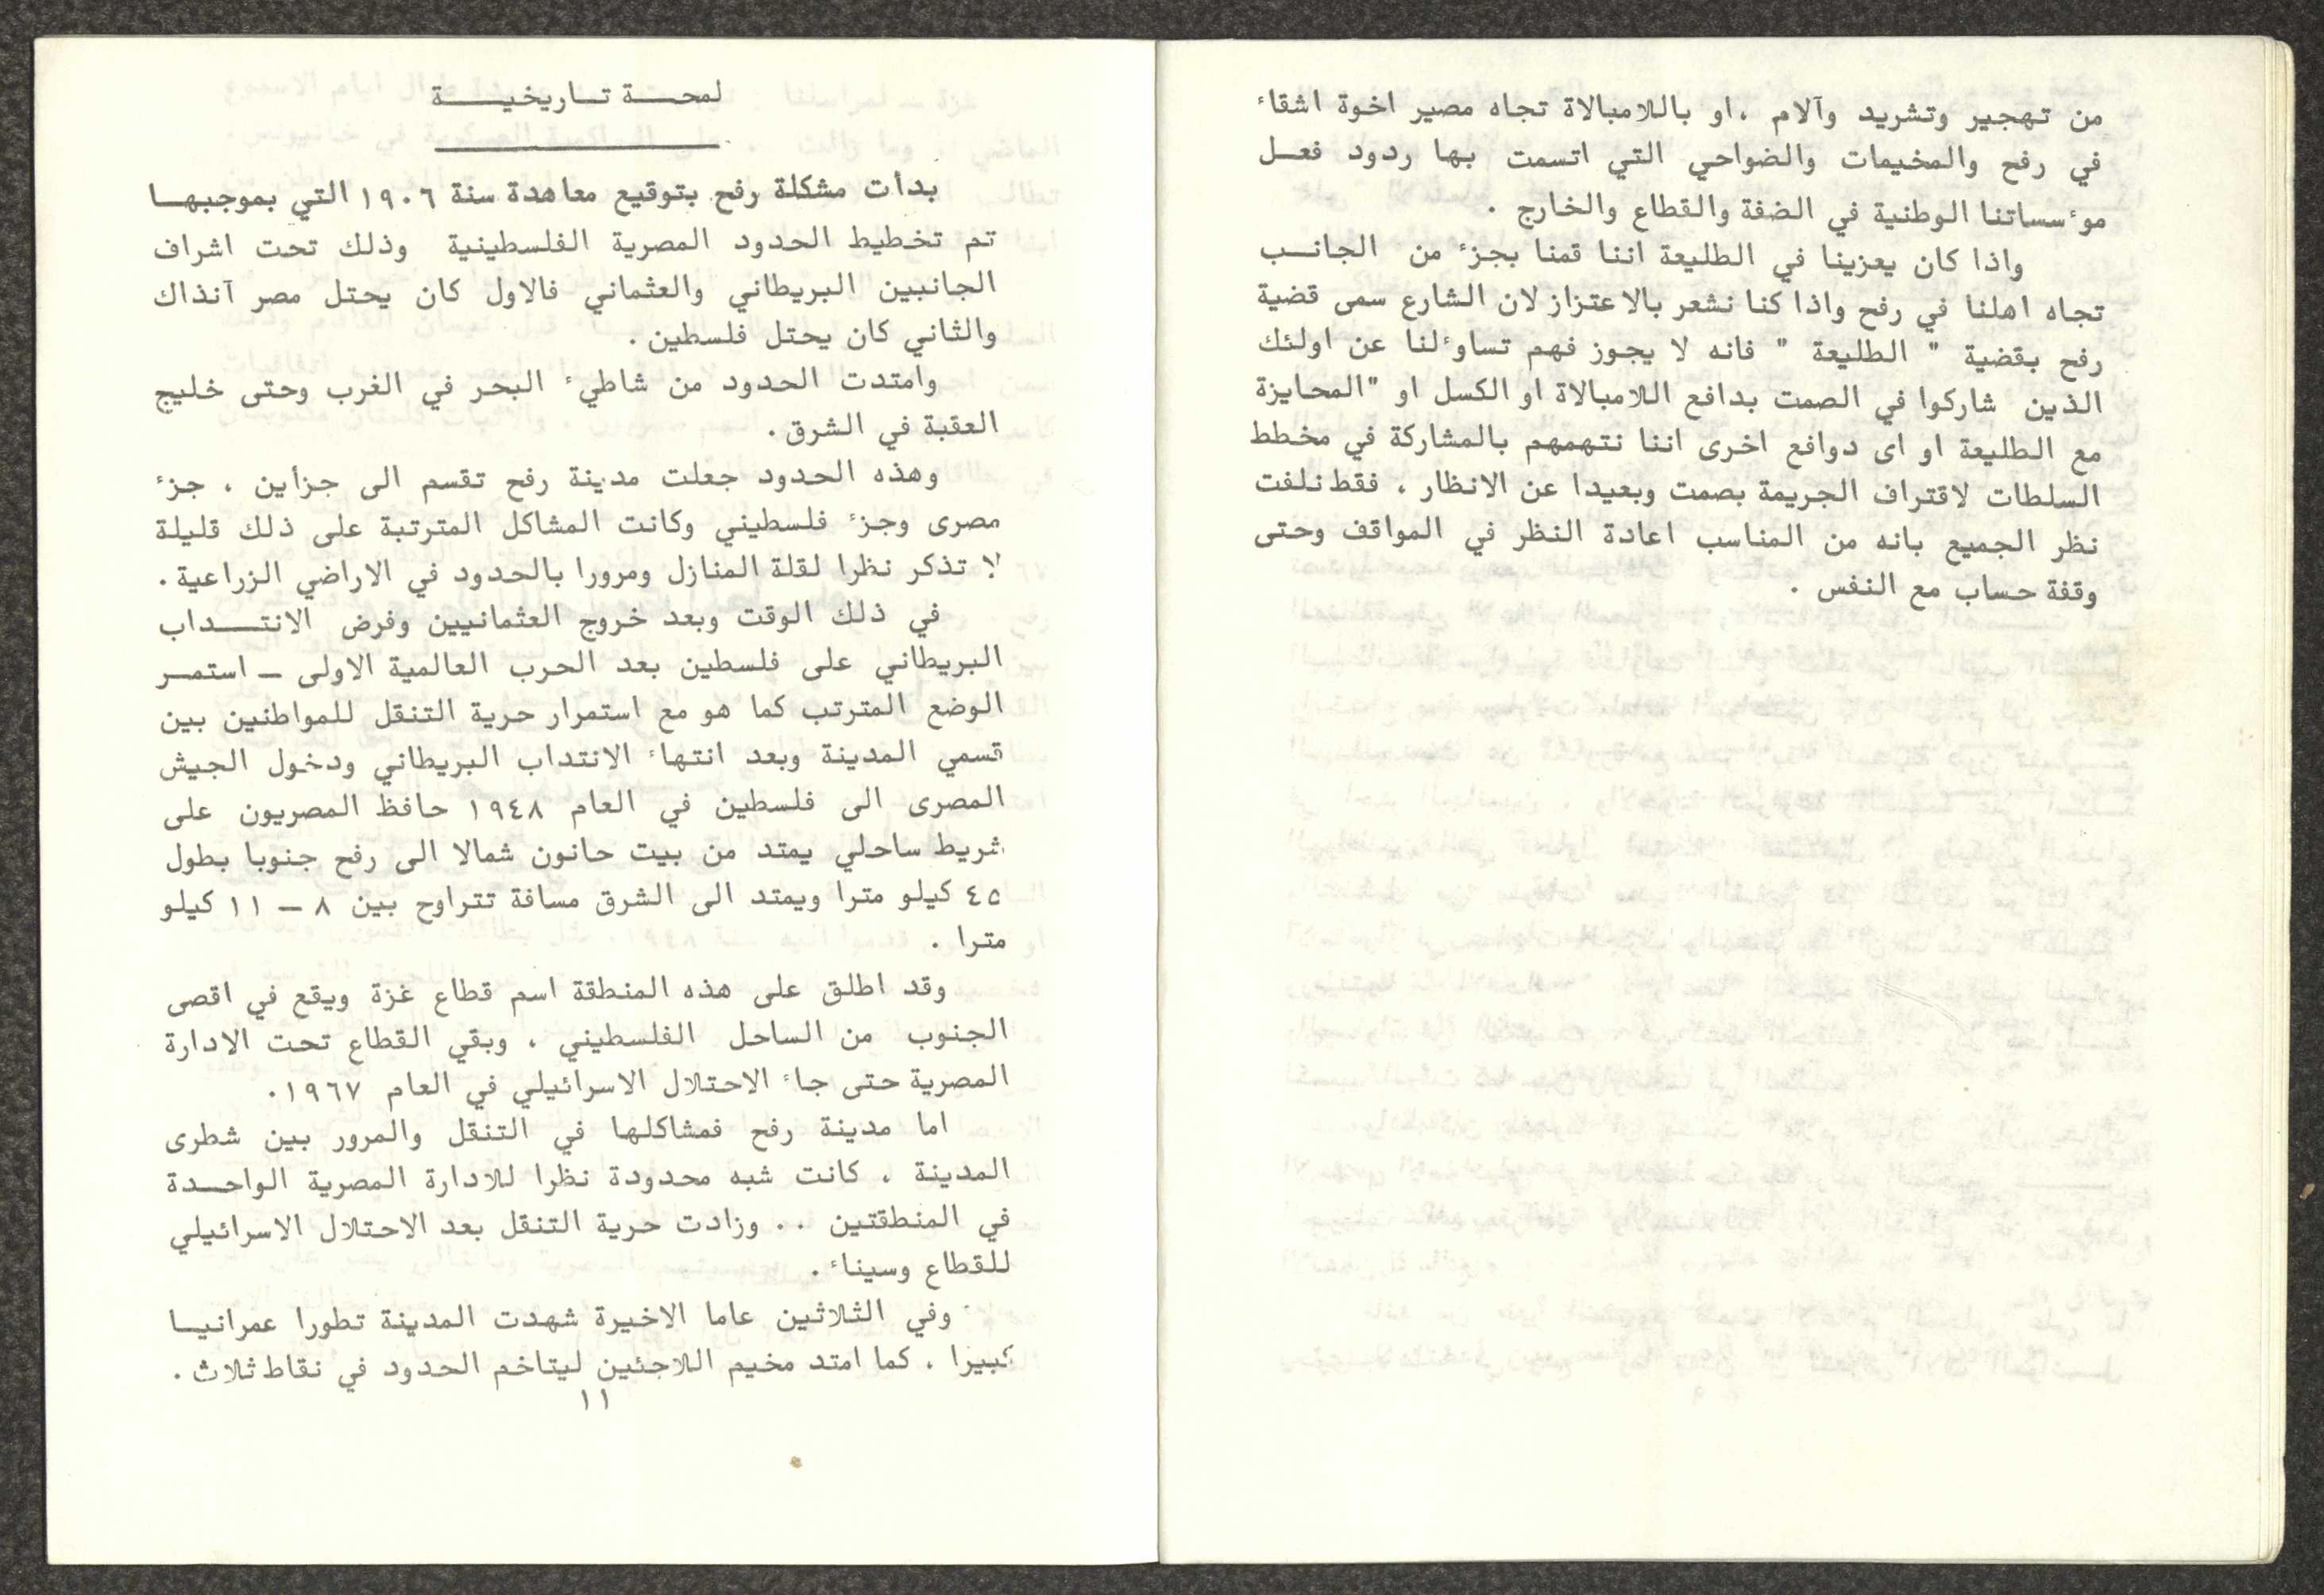 من تهجير وتشريد وآلام ، او باللامبالاة تجاه مصير اخوة اشقاء
في رفح والمخيمات والضواحي التي اتسمت بها ردود فعـل
مؤسساتنا الوطنية في الضفة والقطاع والخارج .
واذا كان يعزينا في الطليعة اننا قمنا بجزء من الجانـب
تجاه اهلنا في رفح واذا كنا نشعر بالاعتزاز لان الشارع سمى قضية
رفح بقضية " الطليعة " فانه لا يجوز فهم تساؤلنا عن اولئك
الذين شاركوا في الصمت بدافع اللامبالاة او الكسل او "المحايزة
مع الطليعة او اى دوافع اخرى اننا نتهمهم بالمشاركة في مخطط
السلطات لاقتراف الجريمة بصمت وبعيدا عن الانظار ، فقط نلفت
نظر الجميع بانه من المناسب اعادة النظر في المواقف وحتى
وقفة حساب مع النفس .
لمحـــة تـاريخيـــة
بدأت مشكلة رفح بتوقيع معاهدة سنة ١٩٠٦ التي بموجبهـا
تم تخطيط الحدود المصرية الفلسطينية وذلك تحت اشراف
الجانبين البريطاني والعثماني فالاول كان يحتل مصر آنذاك
والثاني كان يحتل فلسطين .
وامتدت الحدود من شاطيء البحر في الغرب وحتى خليج
العقبة في الشرق .
وهذه الحدود جعلت مدينة رفح تقسم الى جزأين ، جزء
مصرى وجزء فلسطيني وكانت المشاكل المترتبة على ذلك قليلة
لا تذكر نظرا لقلة المنازل ومرورا بالحدود في الاراضي الزراعية .
في ذلك الوقت وبعد خروج العثمانيين وفرض الانتــداب
البريطاني على فلسطين بعد الحرب العالمية الاولى ــ استمـر
الوضع المترتب كما هو مع استمرار حرية التنقل للمواطنين بين
قسمي المدينة وبعد انتهاء الانتداب البريطاني ودخول الجيش
المصرى الى فلسطين في العام ١٩٤٨ حافظ المصريون على
شريط ساحلي يمتد من بيت حانون شمالا الى رفح جنوبا بطول
٤٥ كيلو مترا ويمتد الى الشرق مسافة تتراوح بين ٨ ــ ١١ كيلو
مترا .
وقد اطلق على هذه المنطقة اسم قطاع غزة ويقع في اقصى
الجنوب من الساحل الفلسطيني ، وبقي القطاع تحت الادارة
المصرية حتى جاء الاحتلال الاسرائيلي في العام ١٩٦٧ .
اما مدينة رفح فمشاكلها في التنقل والمرور بين شطرى
المدينة ، كانت شبه محدودة نظرا للادارة المصرية الواحـدة
في المنطقتين .. وزادت حرية التنقل بعد الاحتلال الاسرائيلي
للقطاع وسيناء .
وفي الثلاثين عاما الاخيرة شهدت المدينة تطورا عمرانيـا
كبيرا ، كما امتد مخيم اللاجئين ليتاخم الحدود في نقاط ثلاث .
١١